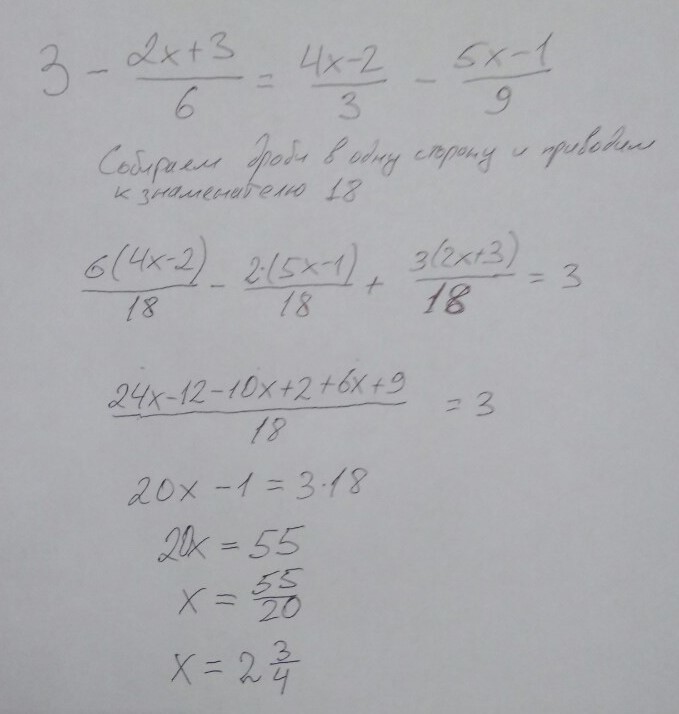 3 - (2x+3)/6 = (4x-2)/3 - (5x-1)/9
Собираем дроби в одну сторону и приводим
к знаменателю 18
6(4x-2)/18 - 2·(5x-1)/18 + 3(2x+3)/18 = 3
(24x-12-10x+2+6x+9)/18 = 3
20x - 1 = 3·18
20x = 55
x = 55/20
x = 2 3/4